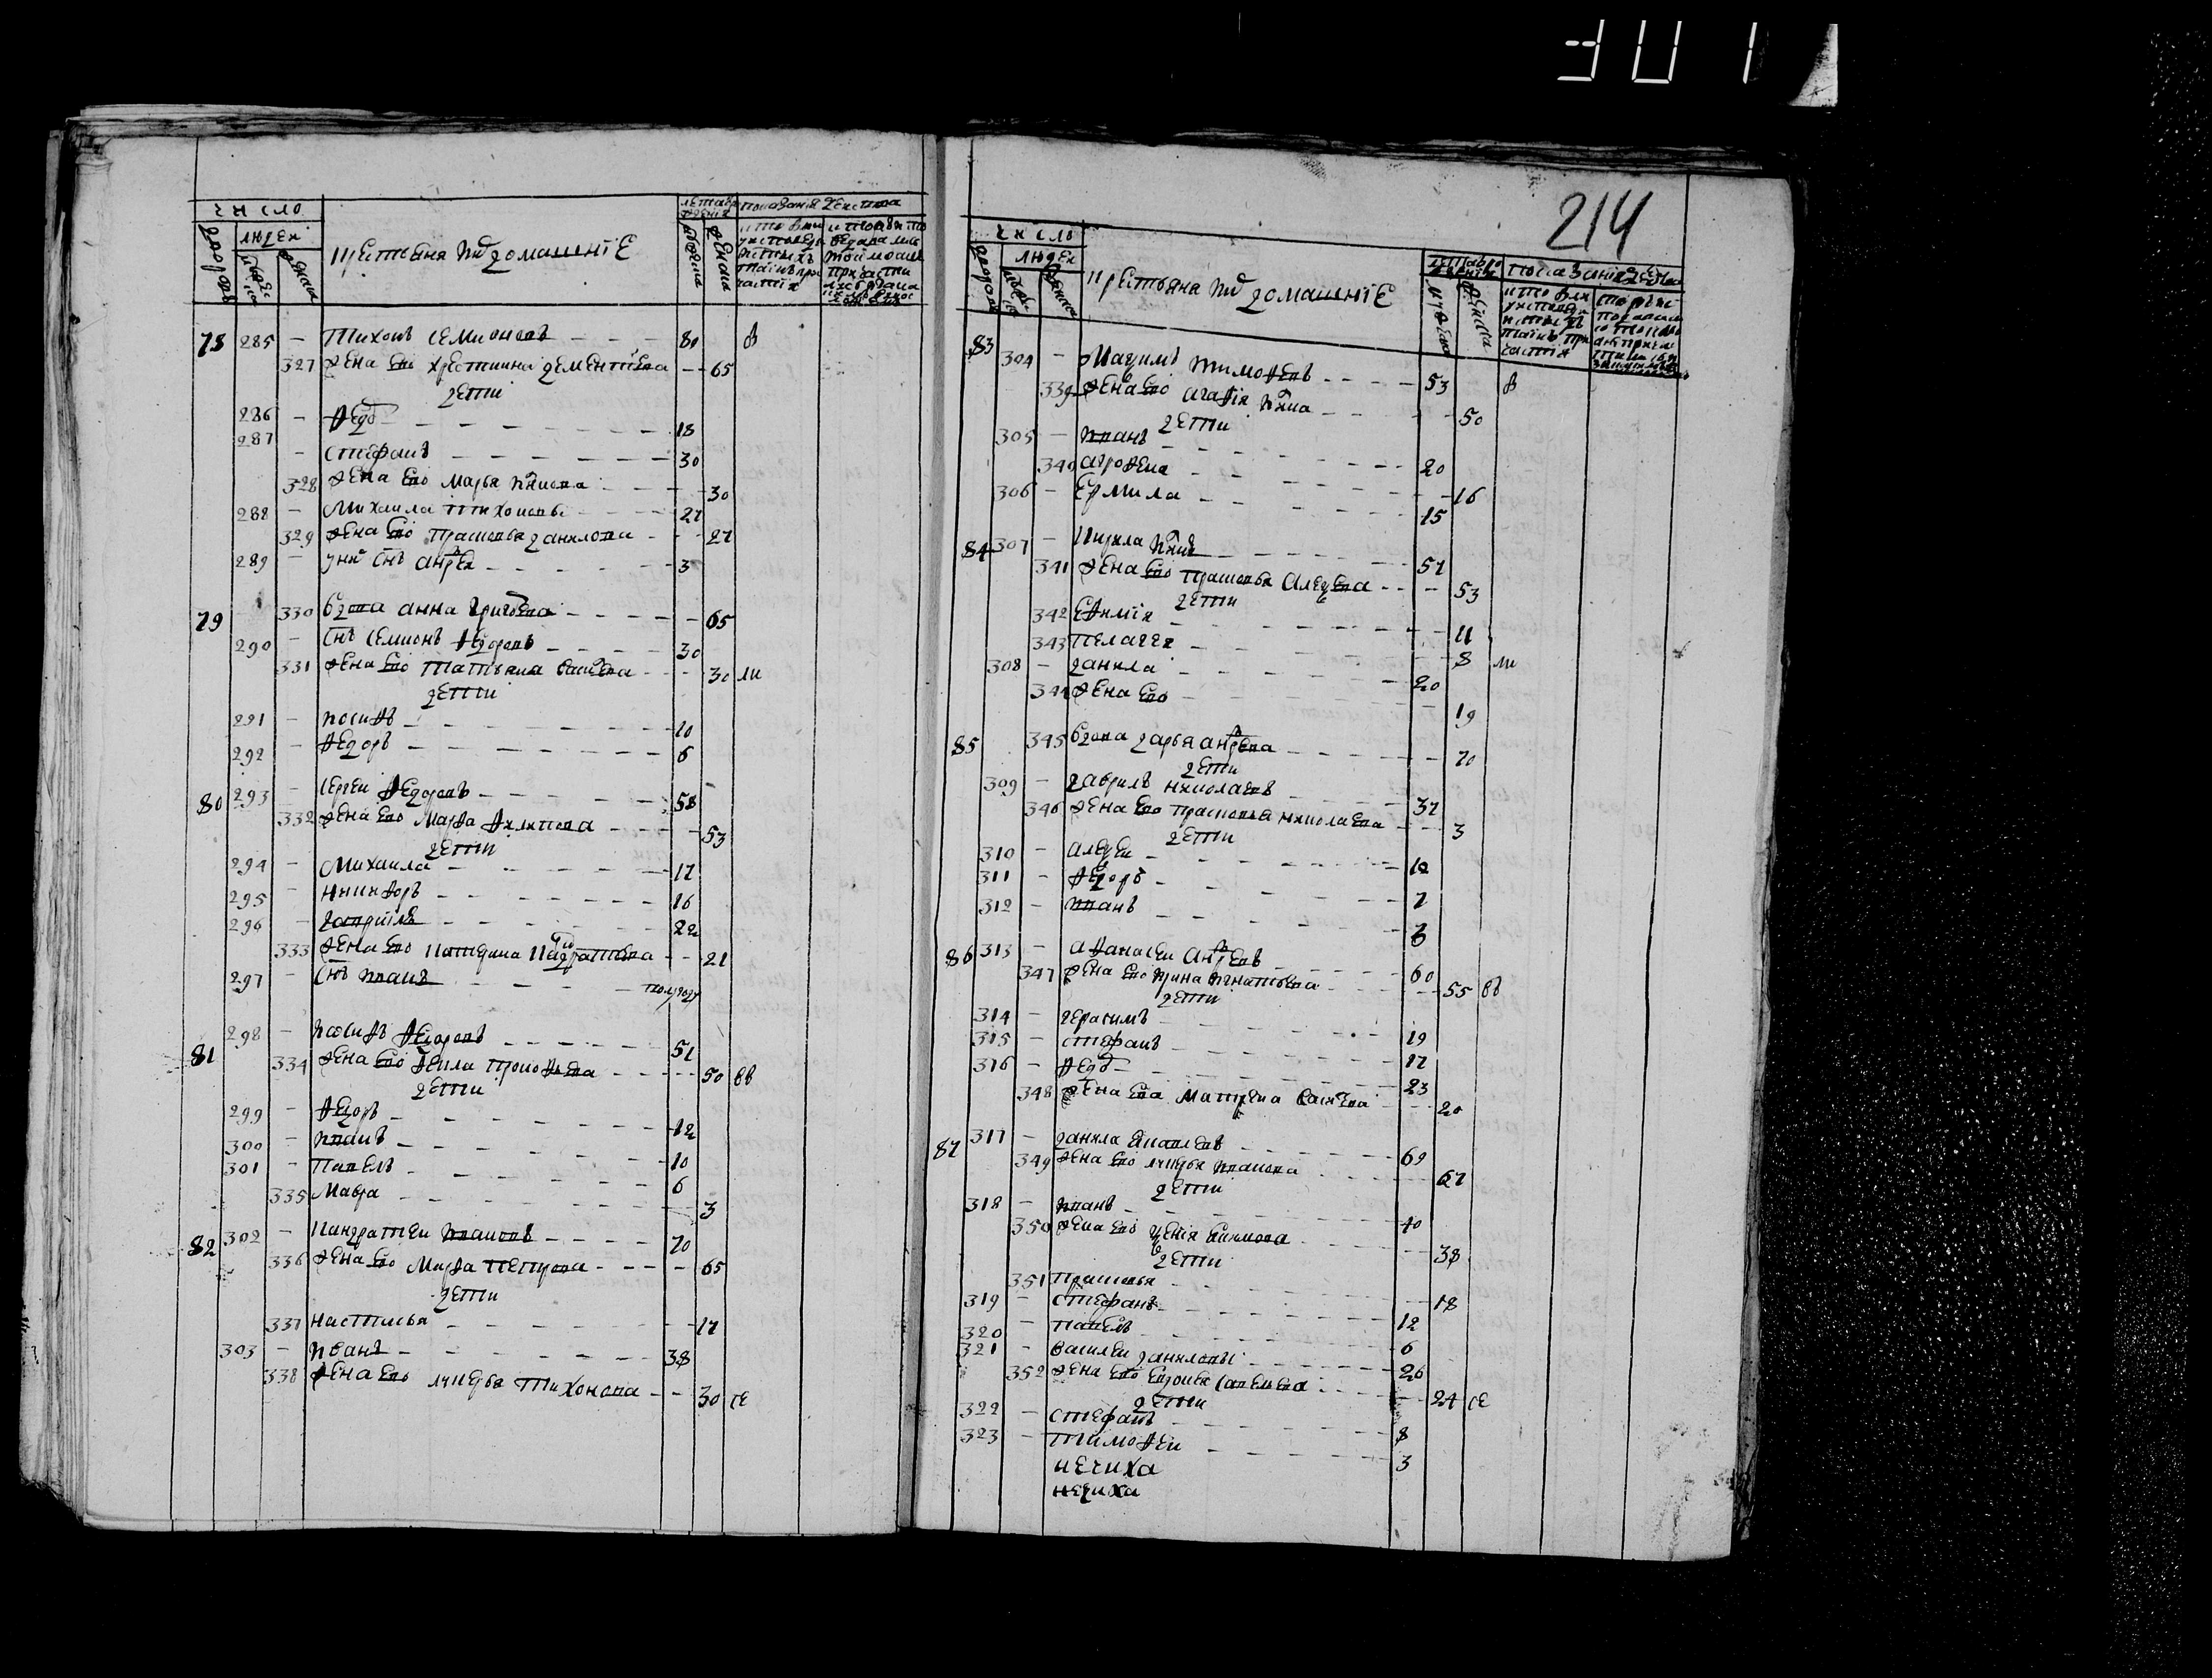 301
число
людей
дворовъ
мужеска
женска
крестьяня и домашнiе
лета рождения
мужеска
женска
показанiя действа
78 285 – Тихонъ Семионовъ – – – 80 в
327 жена ево Хрестиния Дементiева – – 65
дети
286 – Федоръ – – – 18
287 – Стефанъ – – – 30
328 жена ево Марья Иванова – – – 30
288 – Михаила Тихоновъ – – – 27
329 жена ево Прасковья Данилова – – – 27
289 – у них снъ Андрей – – – 3
79 330 вдова Анна Григорева – – – 65
290 – снъ Семионъ Федоровъ – – – 30
331 жена ево Татьяна Василева – – – 30 ли
дети
291 – Иосифъ – – – 10
292 – Федоръ – – – 6
80 293 – Сергеи Федоровъ – – – 58
332 жена ево Марфа Филипова – – – 53
дети
294 – Михаила – – – 17
295 – Никифоръ – – – 16
296 – Гаврiилъ – – – 22
333 жена ево Катерина Кандратьева – – 21
297 – снъ Иванъ – – – полугоду
81 298 – Иосифъ Федоровъ – – – 51
334 жена ево Фекла Прокофьева – – – 50 вв
дети
299 – Федоръ – – – 12
300 – Иванъ – – – 10
301 – Павелъ – – – 6
335 Мавра – – – 3
82 302 – Кандратеи Ивановъ – – – 70
336 жена ево Марфа Петрова – – – 65
дети
337 Настасья – – – 17
303 – Иванъ – – – 38
338 жена ево Лукерья Тихонова – – 30 се
214
число
людей
дворовъ
женска
крестьяна и домашнiе
женска
показанiя действа
83 304 – Маѯимъ Тимофеевъ – – – 53 в
339 жена ево Агафiя Ивнова – – – 50
дети
305 – Иванъ – – – 20
340 Агрофена – – – 16
306 – Ермила – – – 15
84 307 – Кирила Ивновъ – – – 57
341 жена ево Прасковья Алеѯеева – – – 53
дети
342 Ефимiя – – – 11
343 Пелагея – – – 8 ли
308 – Данила – – – 20
344 жена ево – – – 19
85 345 вдова Дарья Андреева – – – 70
дети
309 – Гаврилъ Николаевъ – – – 37
346 жена ево Прасковья Николаева – – – 3
дети
310 – Алеѯеи – – – 10
311 – Федоръ – – – 7
312 – Иванъ – – – 3
86 313 – Афанасеи Андреевъ – – – 60
347 жена ево Ирина Игнатьева – – – 55 вв
дети
314 – Герасимъ – – – 19
315 – Стефанъ – – – 17
316 – Федоръ – – – 23
348 жена ева Матрена Василева – – – 20
87 317 – Данила Яковлевъ – – – 69
349 жена ево Лукерья Иванова – – – 67
дети
318 – Иванъ – – – 40
350 жена ево Ѯенiя Акимова – – – 38
дети
351 Прасковья – – – 18
319 – Стефанъ – – – 12
320 – Павелъ – – – 6
321 – Василеи Даниловъ – – – 26
352 жена ево Евдокия Савельева – – – 24 се
дети
322 – Стефанъ – – – 8
323 – Тимофеи – – – 3